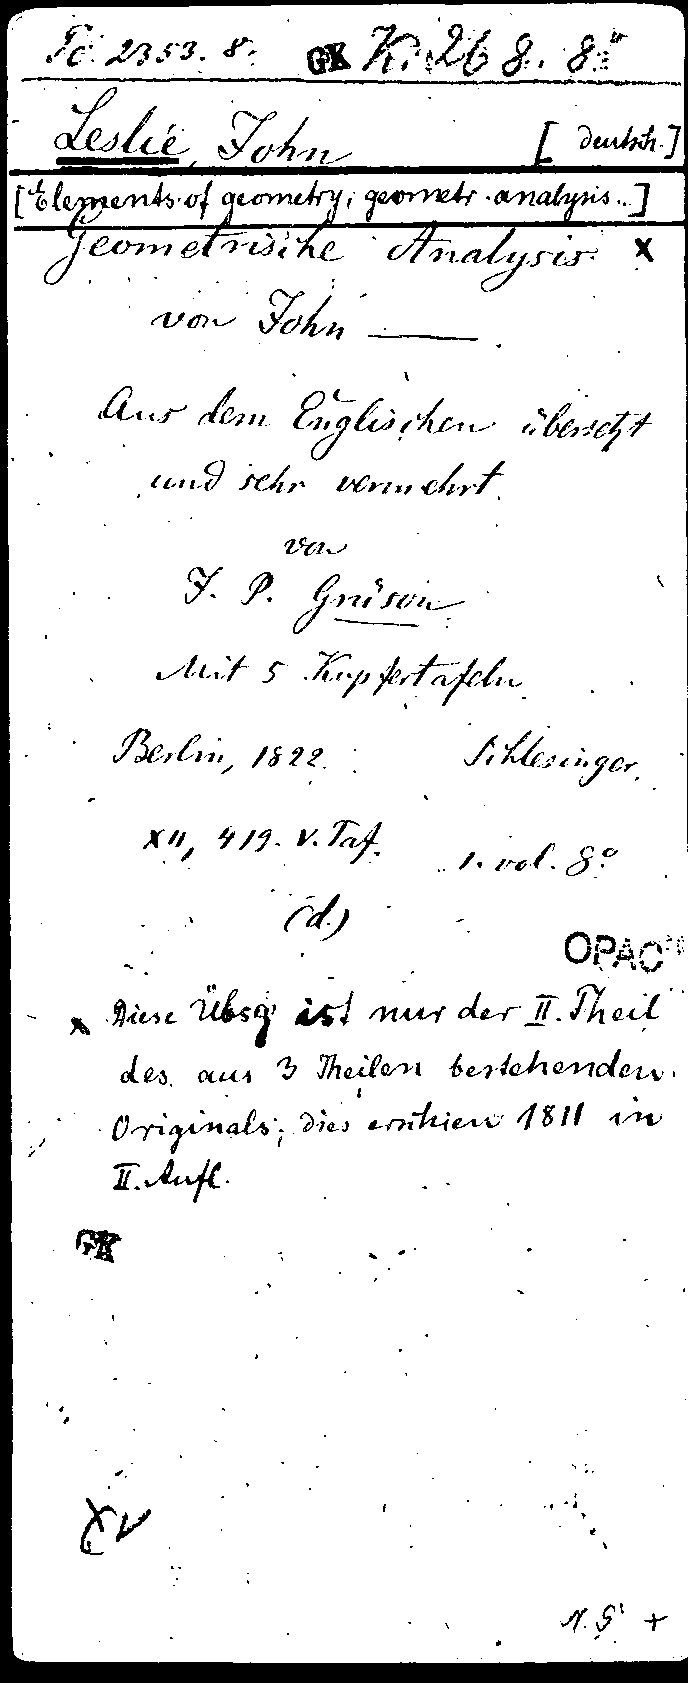 2353. 8. GK K. 268. 8°
Leslie, John [deutsch.]
[Elements of geometry, geometr. analysis..]
Geometrische Analysis x
von John ———.
Aus dem Englischen übersetzt
und sehr vermehrt
von
J. P. Grüson
Mit 5 Kupfertafeln
Berlin, 1822. Schlesinger.
XII, 419. V. Taf. 1. vol. 8°
(d.)
OPAC
x Diese Übsg ist nur der II. Theil
des aus 3 Theilen bestehenden
Originals; dies erschien 1811 in
II. Aufl.
GK
N. G +